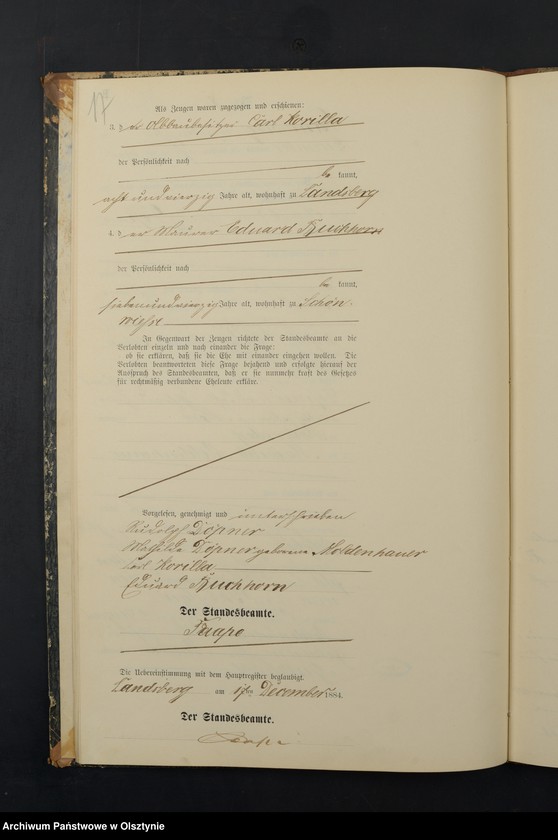 17
Als Zeugen waren zugezogen und erschienen:
3. der Abbaubesitzer Carl Korilla
der Persönlichkeit nach
be kannt,
acht und vierzig Jahre alt, wohnhaft zu Landsberg
4. der Maurer Eduard Buchhorn
der Persönlichkeit nach
be kannt,
siebenundvierzig Jahre alt, wohnhaft zu Schön-
wiese
In Gegenwart der Zeugen richtete der Standesbeamte an die
Verlobten einzeln und nach einander die Frage:
ob sie erklären, daß sie die Ehe mit einander eingehen wollen. Die
Verlobten beantworteten diese Frage bejahend und erfolgte hierauf der
Ausspruch des Standesbeamten, daß er sie nunmehr kraft des Gesetzes
für rechtmäßig verbundene Eheleute erkläre.
Vorgelesen, genehmigt und unterschrieben
Rudolph Döpner
Mathilde Döpner geborene Moldenhauer
Carl Korilla
Eduard Buchhorn
Der Standesbeamte.
Die Uebereinstimmung mit dem Hauptregister beglaubigt.
Landsberg am 17ten December 1884.
Der Standesbeamte.
Archiwum Państwowe w Olsztynie